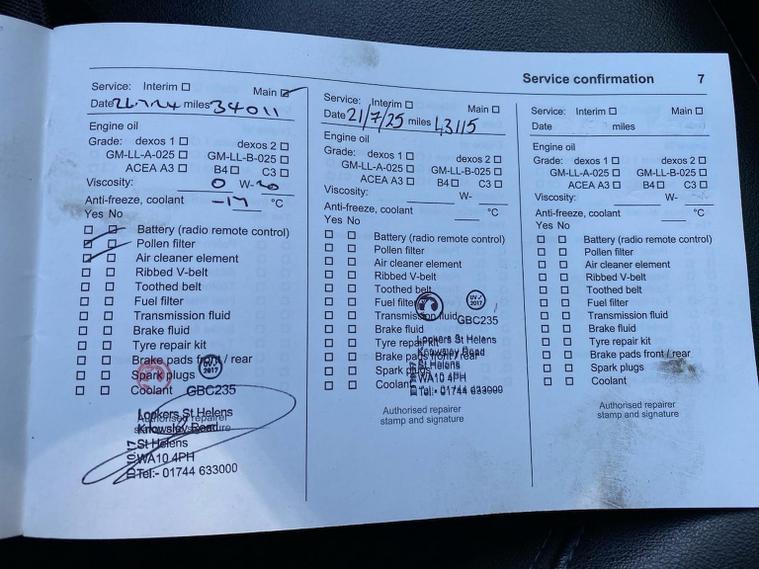 Service confirmation 7
Service: Interim ☐ Main ☑
Date 26.7.24 miles 34011
Engine oil
Grade: dexos 1 ☐ dexos 2 ☐
GM-LL-A-025 ☐ GM-LL-B-025 ☐
ACEA A3 ☐ B4 ☐ C3 ☐
Viscosity: 0 W-20
Anti-freeze, coolant -17 °C
Yes No
Battery (radio remote control)
Pollen filter
Air cleaner element
Ribbed V-belt
Toothed belt
Fuel filter
Transmission fluid
Brake fluid
Tyre repair kit
Brake pads front / rear
Spark plugs
Coolant
UV✓
2017
GBC235
Authorised repairer
stamp and signature
Lookers St Helens
Knowsley Road
St Helens
WA10 4PH
Tel:- 01744 633000
Service: Interim ☐ Main ☐
Date 21/7/25 miles 43115
Engine oil
Grade: dexos 1 ☐ dexos 2 ☐
GM-LL-A-025 ☐ GM-LL-B-025 ☐
ACEA A3 ☐ B4 ☐ C3 ☐
Viscosity: W-
Anti-freeze, coolant °C
Yes No
Battery (radio remote control)
Pollen filter
Air cleaner element
Ribbed V-belt
Toothed belt
Fuel filter
Transmission fluid
Brake fluid
Tyre repair kit
Brake pads front / rear
Spark plugs
Coolant
UV✓
2017
GBC235
Lookers St Helens
Knowsley Road
St Helens
WA10 4PH
Tel:- 01744 633000
Authorised repairer
stamp and signature
Service: Interim ☐ Main ☐
Date miles
Engine oil
Grade: dexos 1 ☐ dexos 2 ☐
GM-LL-A-025 ☐ GM-LL-B-025 ☐
ACEA A3 ☐ B4 ☐ C3 ☐
Viscosity: W-
Anti-freeze, coolant °C
Yes No
Battery (radio remote control)
Pollen filter
Air cleaner element
Ribbed V-belt
Toothed belt
Fuel filter
Transmission fluid
Brake fluid
Tyre repair kit
Brake pads front / rear
Spark plugs
Coolant
Authorised repairer
stamp and signature